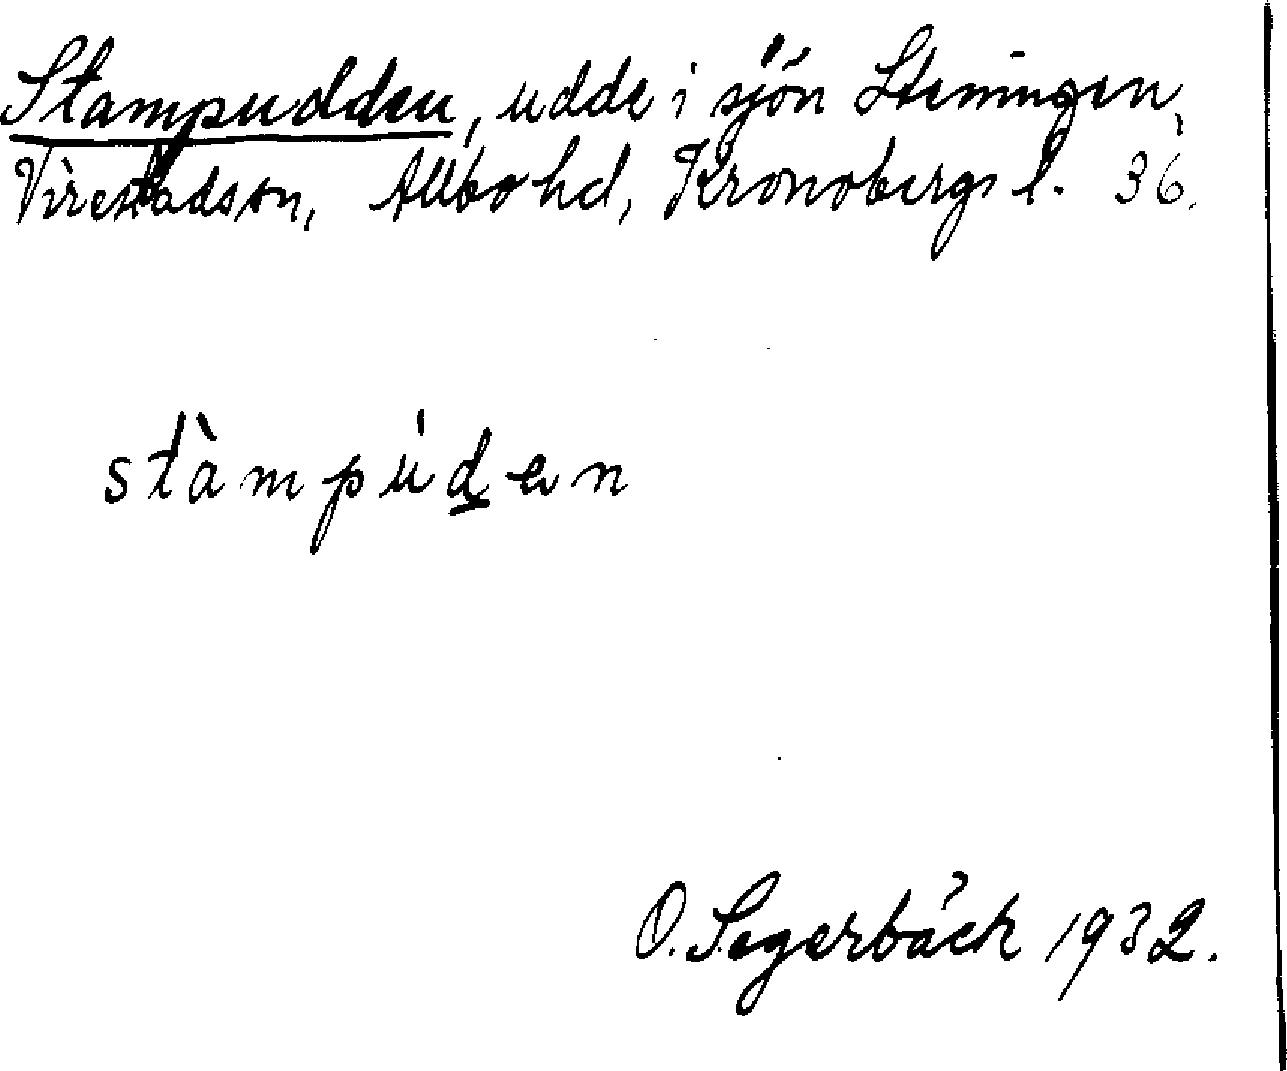 Stampudden, udde i sjön Steningen,
Virestads sn, Allbo hd, Kronobergs l. 36.
stàmpúden
O. Segerbäck 1932.